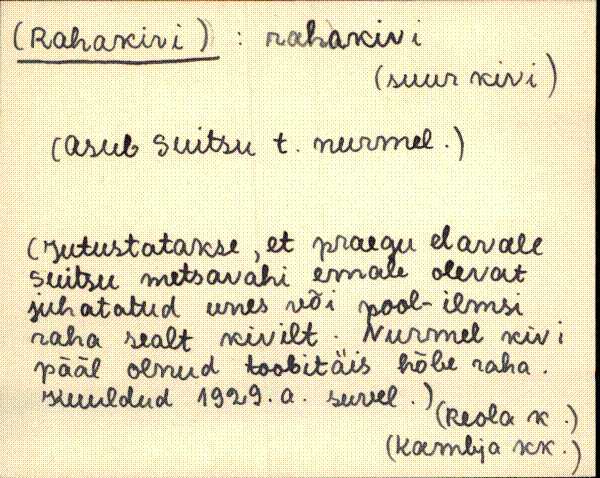 (Rahakivi) : rahakivi
(suur kivi)
(asub Suitsu t. nurmel.)
(Jutustatakse, et praegu elavale
Suitsu metsavahi emale olevat
juhatatud unes või pool-ilmsi
raha sealt kivilt. Nurmel kivi
pääl olnud toobitäis hõbe raha.
Kuuldud 1929.a. suvel.)
(Reola k.)
(Kambja kk.)